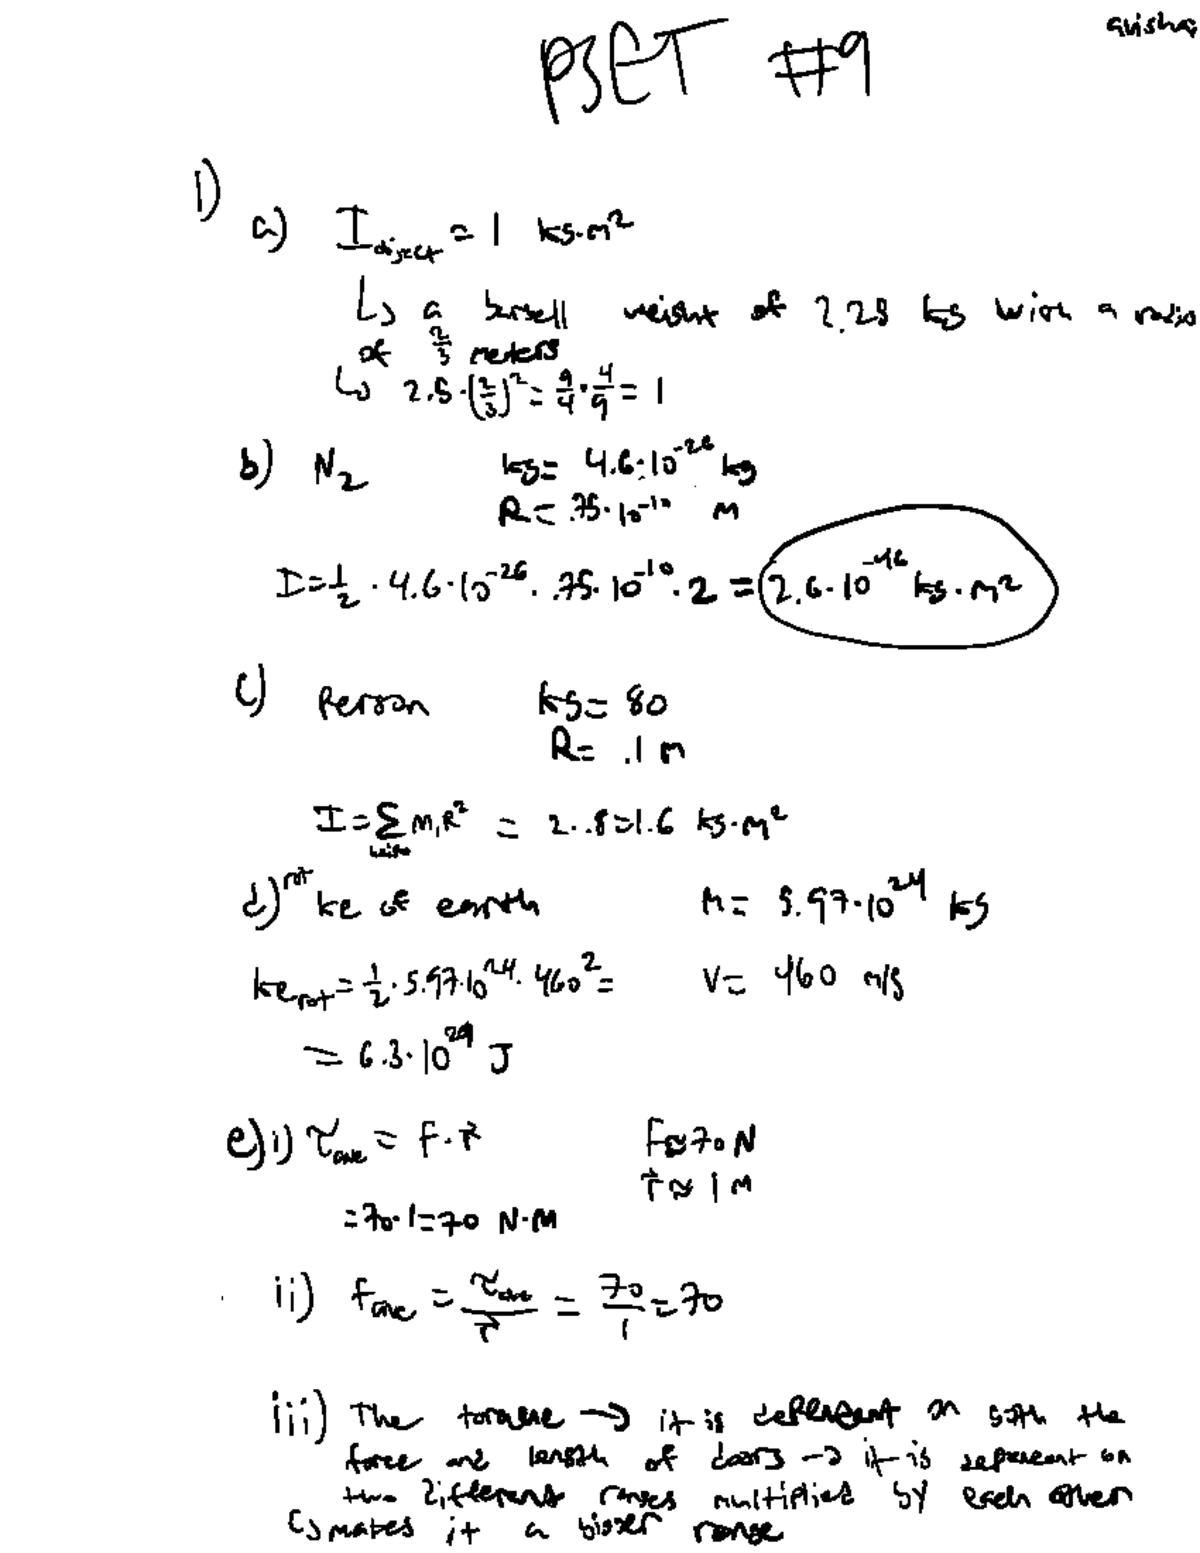 avisha
PSET #9
1)
a) I_object = 1 kg·m²
↳ a barbell weight of 2.25 kg with a radio
of 2/3 meters
↳ 2.5·(2/3)² = 9/4 · 4/9 = 1
b) N₂ kg = 4.6·10⁻²⁶ kg
R = .75·10⁻¹⁰ M
I = 1/2 · 4.6·10⁻²⁶ · .75·10⁻¹⁰ · 2 = 2.6·10⁻⁴⁶ kg·m²
c) Person kg = 80
R = .1 m
I = Σ MᵢR² = 2·.8 = 1.6 kg·m²
d) rot ke of earth M = 5.97·10²⁴ kg
ke_rot = 1/2 · 5.97·10²⁴ · 460² = V = 460 m/s
= 6.3·10²⁹ J
e) i) τ_ave = F·r⃗ F≈70 N
r⃗ ≈ 1 M
= 70·1 = 70 N·M
ii) F_ave = τ_ave/r⃗ = 70/1 = 70
iii) The torque → it is dependent on both the
force and length of doors → it is dependent on
two different ranges multiplied by each other
↳ makes it a bigger range